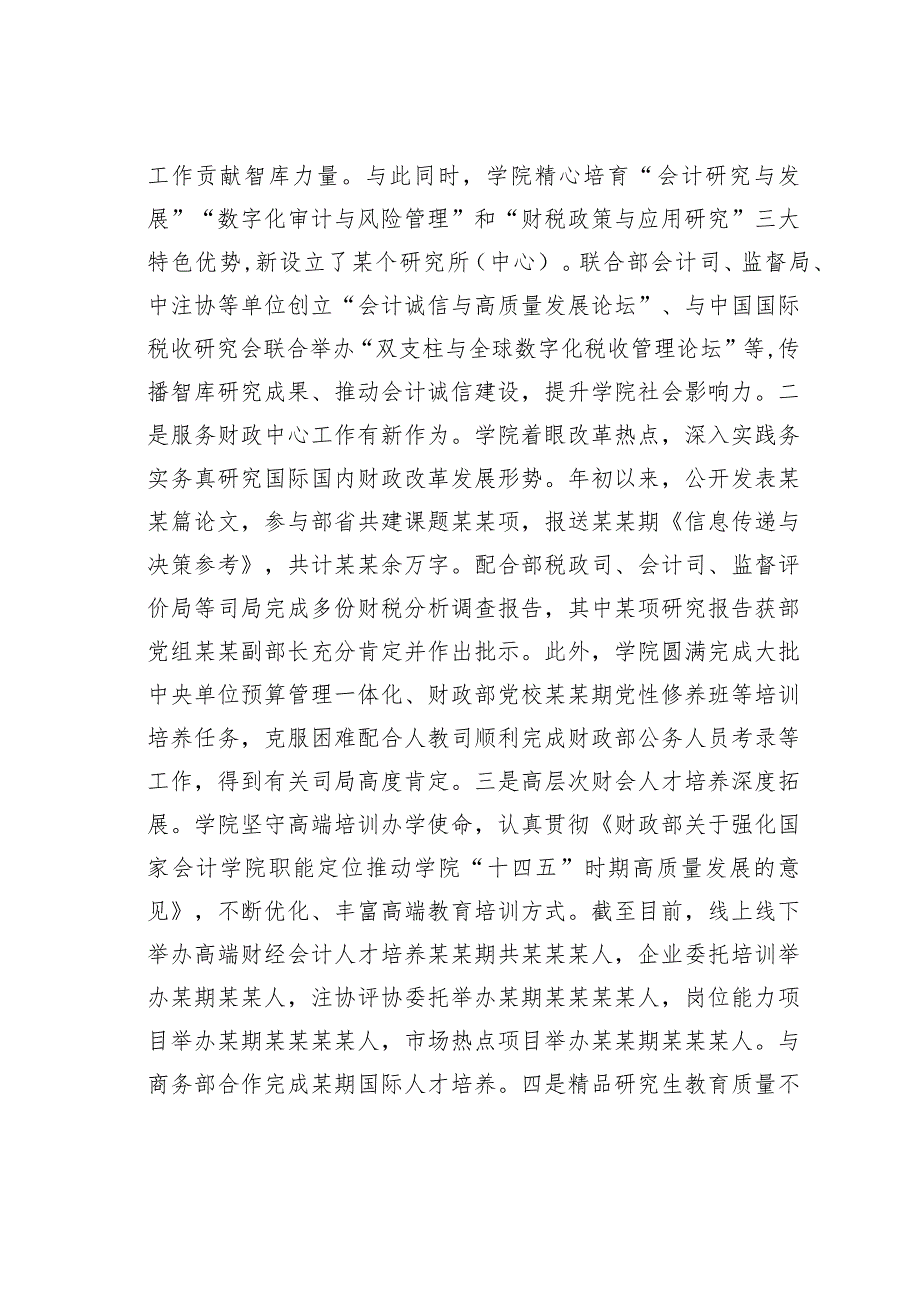 工作贡献智库力量。与此同时，学院精心培育“会计研究与发
展”“数字化审计与风险管理”和“财税政策与应用研究”三大
特色优势,新设立了某个研究所（中心）。联合部会计司、监督局、
中注协等单位创立“会计诚信与高质量发展论坛”、与中国国际
税收研究会联合举办“双支柱与全球数字化税收管理论坛”等,传
播智库研究成果、推动会计诚信建设，提升学院社会影响力。二
是服务财政中心工作有新作为。学院着眼改革热点，深入实践务
实务真研究国际国内财政改革发展形势。年初以来，公开发表某
某篇论文，参与部省共建课题某某项，报送某某期《信息传递与
决策参考》，共计某某余万字。配合部税政司、会计司、监督评
价局等司局完成多份财税分析调查报告，其中某项研究报告获部
党组某某副部长充分肯定并作出批示。此外，学院圆满完成大批
中央单位预算管理一体化、财政部党校某某期党性修养班等培训
培养任务，克服困难配合人教司顺利完成财政部公务人员考录等
工作，得到有关司局高度肯定。三是高层次财会人才培养深度拓
展。学院坚守高端培训办学使命，认真贯彻《财政部关于强化国
家会计学院职能定位推动学院“十四五”时期高质量发展的意
见》，不断优化、丰富高端教育培训方式。截至目前，线上线下
举办高端财经会计人才培养某某期共某某某人，企业委托培训举
办某期某某人，注协评协委托举办某期某某某某人，岗位能力项
目举办某期某某某某人，市场热点项目举办某某期某某某人。与
商务部合作完成某期国际人才培养。四是精品研究生教育质量不